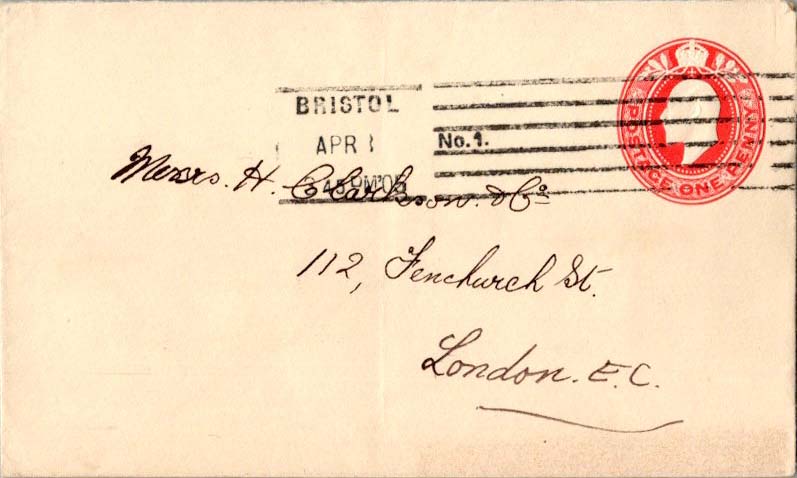 POSTAGE ONE PENNY
BRISTOL
APR 1
No. 1.
45 PM
Messrs. H. Clarkson & Co
112, Fenchurch St.
London. E.C.